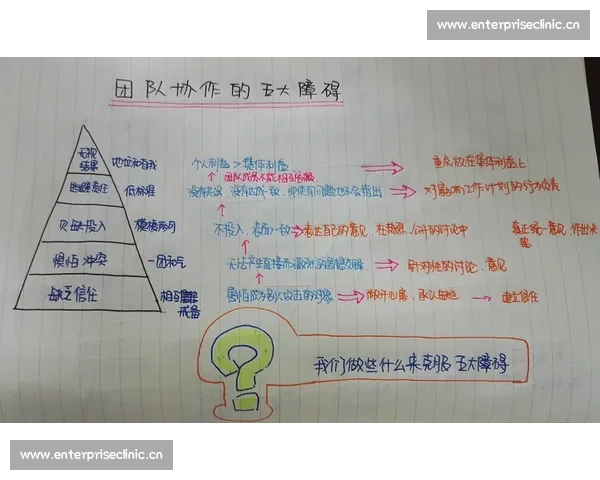 www.enterpriseclinic.cn
团队协作的五大障碍
无视结果 地位和自我 个人利益 > 集体利益 重点放在集体利益上
团队成员不能相互
逃避责任 低标准 没有达成一致,即使有问题也不会指出 对 工作计划的行为负责
欠缺投入 模棱两可 不投入,表面一致 表达自己的意见,在 公开的讨论中 真正统一意见,作出决策
惧怕冲突 一团和气 无法产生直接而激烈的思想交锋 针对性的讨论、意见
缺乏信任 相互 戒备 害怕成为别人攻击的对象 敞开心扉,承认 建立信任
我们做些什么来克服五大障碍
www.enterpriseclinic.cn
www.enterpriseclinic.cn